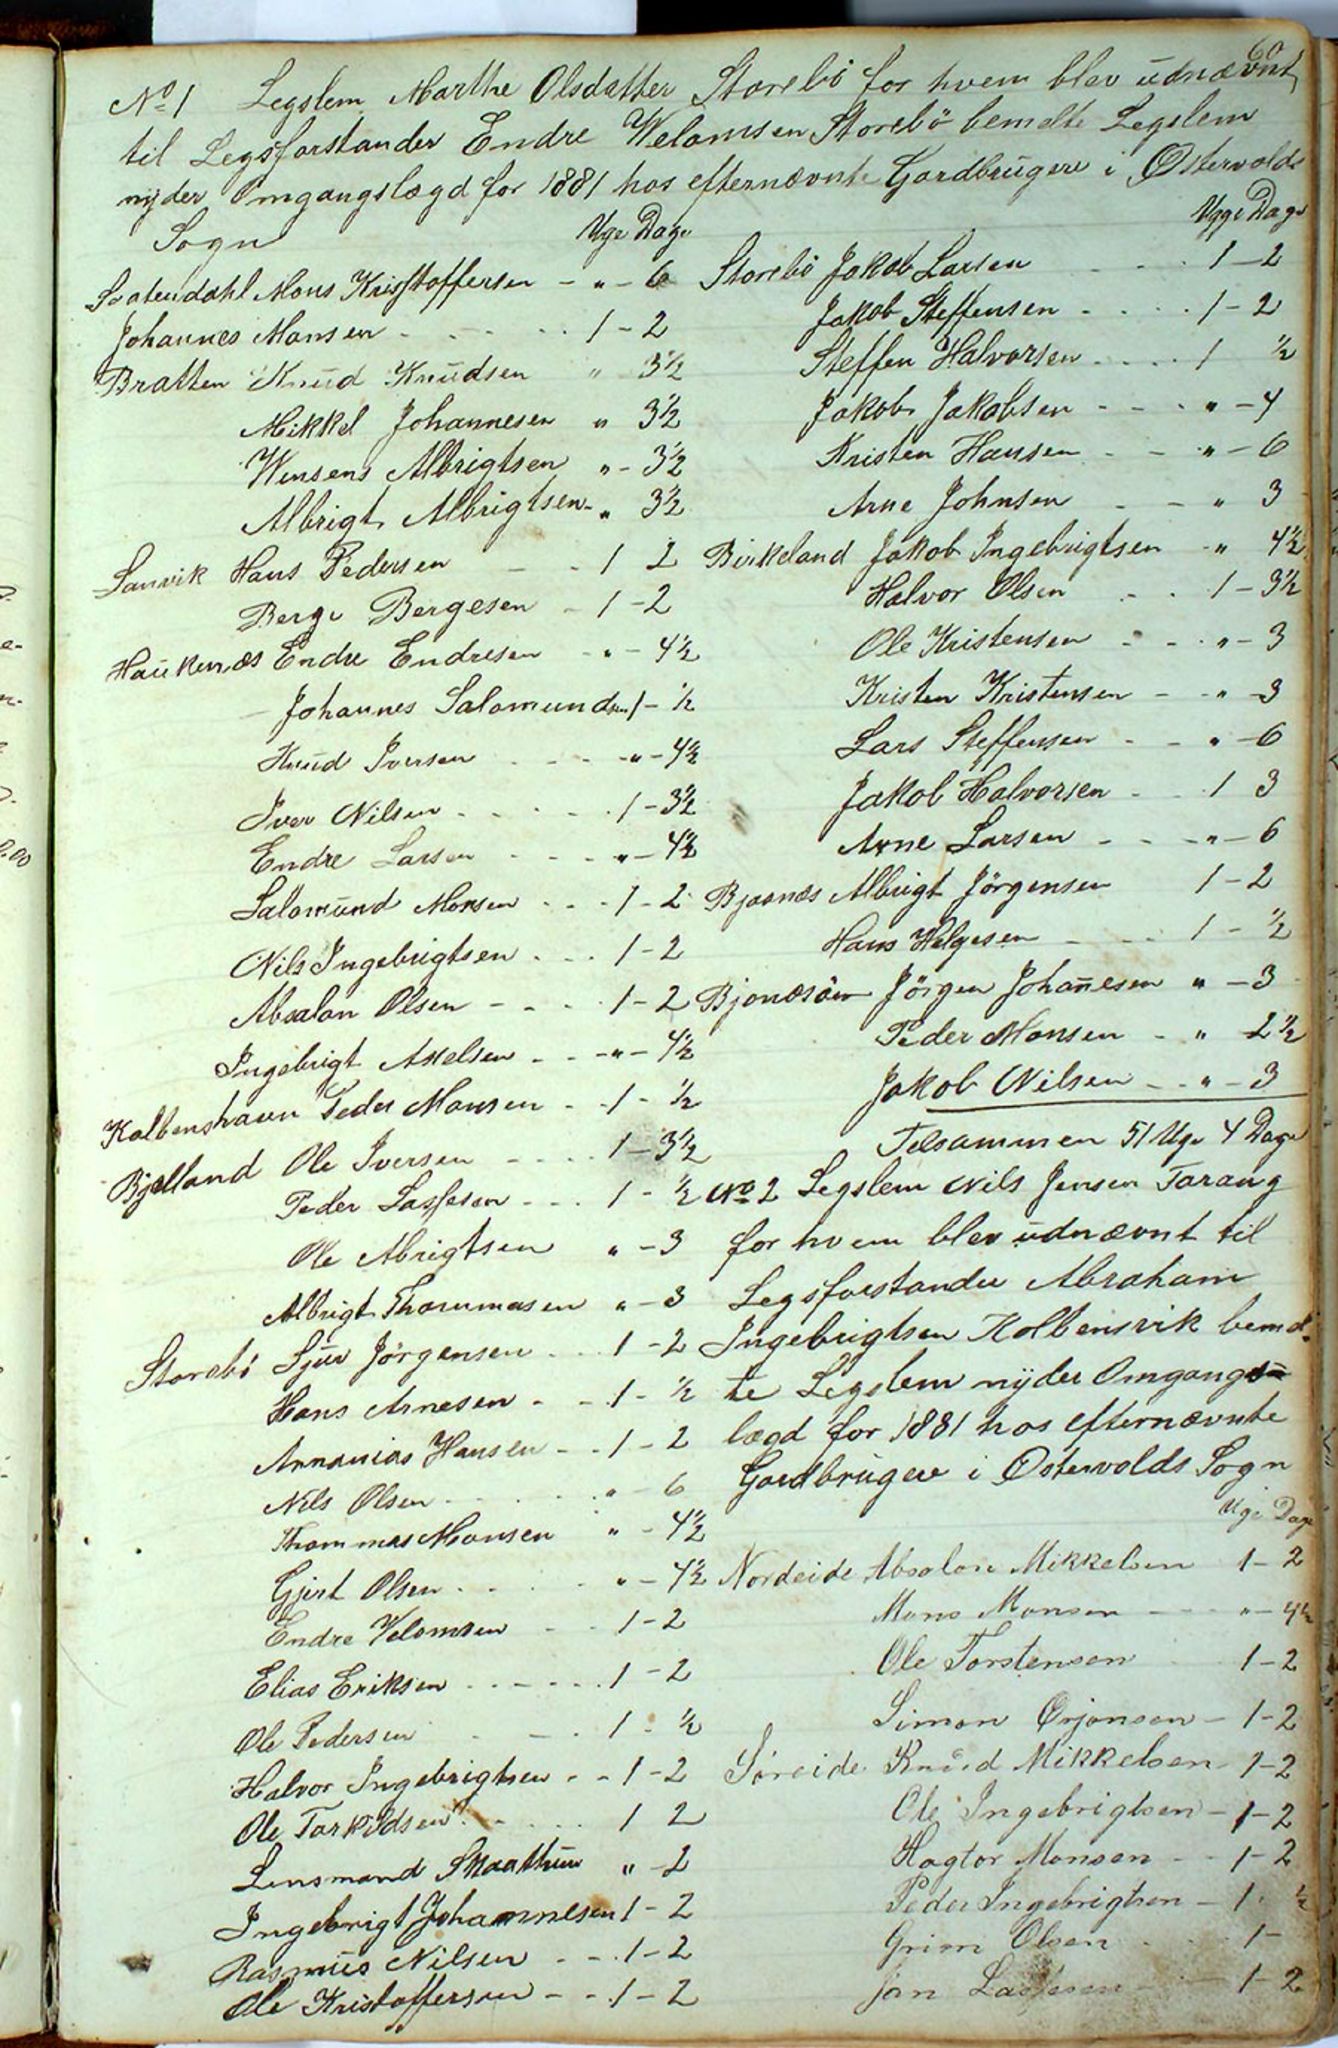 60
No 1 Legslem Marthe Olsdatter Storebö for hvem blev udnævnt
til Legsforstander Endre Welomsen Storebö bemelte Legslem
nyder Omgangslægd for 1881 hos efternævnte Gardbrugere i Østervolds
Sogn Uge Dage
Mons Kristoffersen - " - 6
Johannes Monsen - 1 - 2
Bratten Knud Knudsen " 3½
Mikkel Johannesen " 3½
Wensens Albrigtsen " - 3½
Albrigt Albrigtsen - " 3½
Sanvik Hans Pedersen - 1 2
Berge Bergesen - 1 - 2
Haukenæs Endre Endresen - " - 4½
Johannes Salomundsen 1 - ½
Knud Iversen - " - 4½
Iver Nilsen - 1 - 3½
Endre Larsen - " - 4½
Salomund Monsen - 1 - 2
Nils Ingebrigtsen - 1 - 2
Absalon Olsen - 1 - 2
Ingebrigt Axelsen - " - 4½
Kolbenshavn Peder Monsen - 1 - ½
Bjelland Ole Iversen - 1 - 3½
Peder Lassesen - 1 - ½
Ole Abrigtsen " - 3
Albrigt Thommasen " - 3
Storebö Sjur Jörgensen - 1 - 2
Hans Arnesen - 1 - ½
Annanias Hansen - 1 - 2
Nils Olsen - " - 6
Thommas Monsen " - 4½
Gjert Olsen - " - 4½
Endre Velomsen - 1 - 2
Elias Eriksen - 1 - 2
Ole Pedersen - 1 - ½
Halvor Ingebrigtsen - 1 - 2
Ole Torkildsen - 1 2
Lensmand Skaathun " - 2
Ingebrigt Johannesen 1 - 2
Rasmus Nilsen - 1 - 2
Ole Kristoffersen - 1 - 2
Ugge Dage
Storebö Jakob Larsen - 1 - 2
Jakob Steffensen - 1 - 2
Steffen Halvorsen - 1 ½
Jakob Jakobsen - " - 4
Kristen Hansen - " - 6
Arne Johnsen - " 3
Birkeland Jakob Ingebrigtsen - " 4½
Halvor Olsen - 1 - 3½
Ole Kristensen - " - 3
Kristen Kristensen - " - 3
Lars Steffensen - " - 6
Jakob Halvorsen - 1 3
Arne Larsen - " - 6
Bjaanæs Albrigt Jörgensen 1 - 2
Hans Helgesen - 1 - ½
Jörgen Johannesen " - 3
Peder Monsen - " 2½
Jakob Nilsen - " - 3
Telsammen 51 Uge 4 Dage
No 2 Legslem Nils Jensen Tarang
for hvem blev udnævnt til
Legsforstander Abraham
Ingebrigtsen Kolbensvik bemel-
te Legslem nyder Omgangs=
lægd for 1881 hos efternævnte
Gardbrugere i Østervolds Sogn
Uge Dage
Nordeide Absalon Mikkelsen 1 - 2
Mons Monsen - " - 4½
Ole Torstensen 1 - 2
Simon Ørjansen - 1 - 2
Söreide Knud Mikkelsen - 1 - 2
Ole Ingebrigtsen - 1 - 2
Hagtor Monsen - 1 - 2
Peder Ingebrigtsen - 1 - ½
Grim Olsen - 1 -
Jon Lassesen - 1 - 2